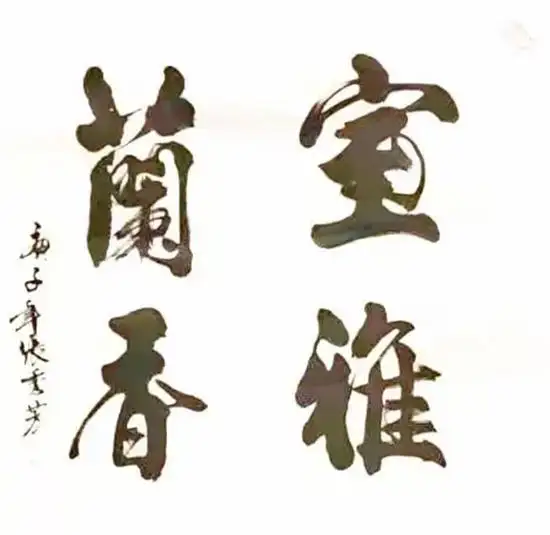 室雅
蘭香
庚子年张秀芳